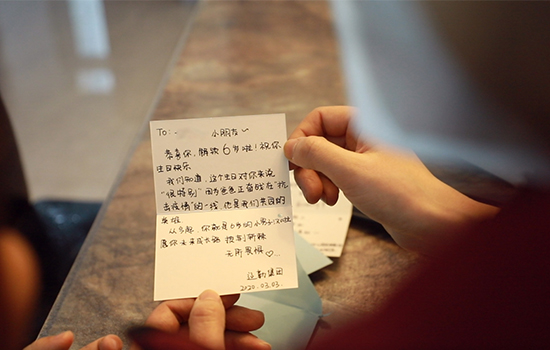 To: 小朋友
恭喜你，解锁6岁啦！祝你
生日快乐
我们知道，这个生日对你来说
"很特别" 因为爸爸正奋战在"抗
击疫情"的一线，他是我们共同的
英雄
从今起，你就是6岁的小男子汉啦
愿你未来成长路
无所畏惧♡...
2020.03.03.